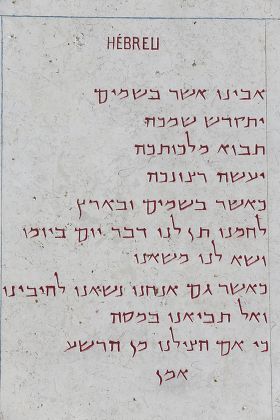 HÉBREU
אבינו אשר בשמים
יתקדש שמכה
תבוא מלכותכה
יעשה רצונכה
כאשר בשמים ובארץ
לחמנו תן לנו דבר יום ביומו
ושא לנו משאנו
כאשר גם אנחנו נשאנו לחיבינו
ואל תביאנו במסה
כי אם הצילנו מן הרשע
אמן